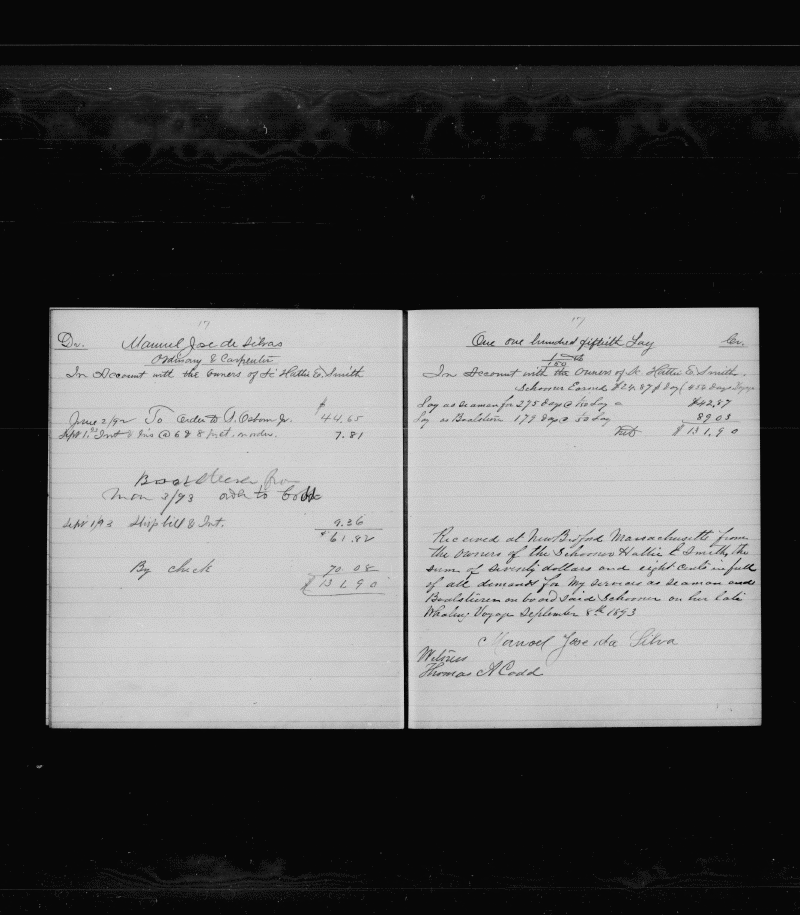 17
Dr. Manuel Jose de Silvas
Ordinary & Carpenter
In Account with the Owners of Sc Hattie E. Smith
$
June 2/92 To Order to A. Osborn Jr. 44.65
Sept 1, 93 Int & Ins @ 6 & 8 pr ct. 7.81
Boatsteerer from
Mon 3/93 order to
Sept 1/93 Ship bill & Int. 9.36
$61.82
By check 70.08
$131.90
17
One one hundred fiftieth Lay Cr.
1/150
In Account with the Owners of Sc. Hattie E. Smith.
Schooner Earned $24.87 p Day
Lay as Seaman for 275 Days @ 1/150 Lay $42.87
Lay as Boatsteerer 179 Days @ 1/50 Lay 89.03
$131.90
Received at New Bedford Massachusetts from
the owners of the Schooner Hattie E Smith, the
sum of Seventy dollars and eight cents in full
of all demands for my services as Seaman and
Boatsteerer on board said Schooner on her late
Whaling Voyage September 8th 1893
Manoel Jose da Silva
Witness
Thomas A Codd